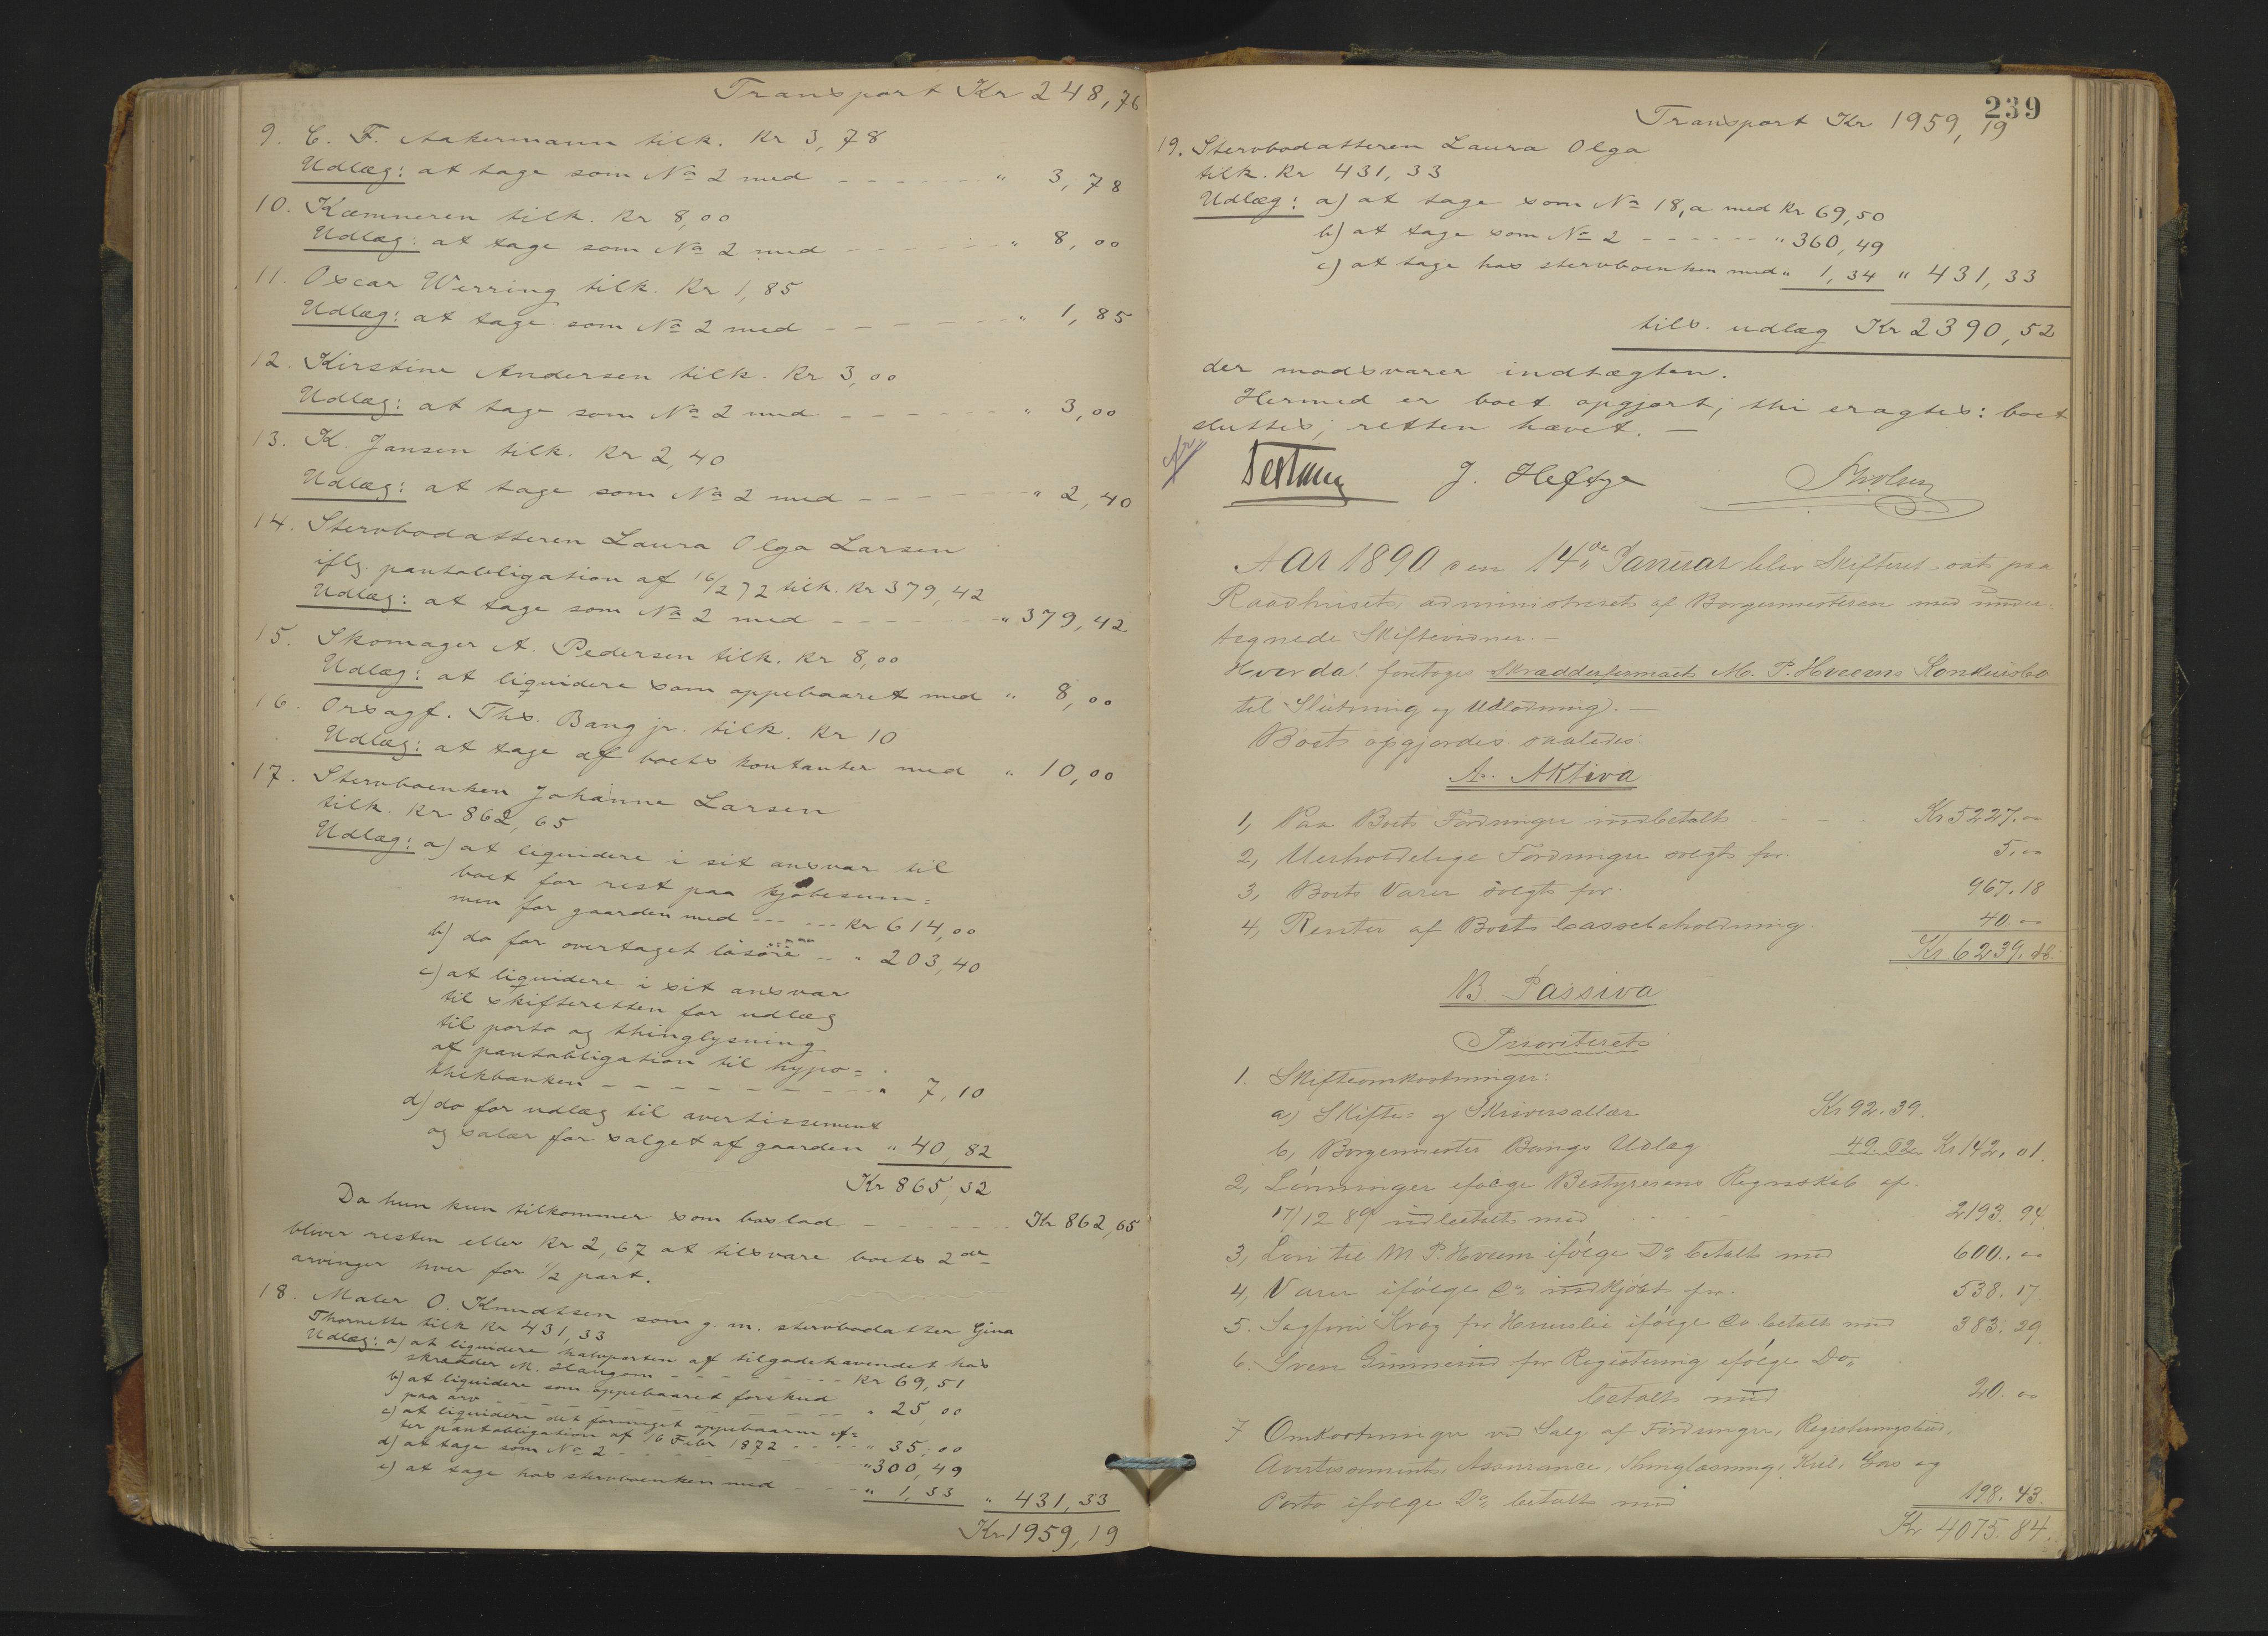 Transport Kr 248,76
9. C. F. Aakermann tilk. Kr 3,78
Udlæg: at tage som No 2 med - - - - - " 3,78
10. Kæmneren tilk. Kr 8,00
Udlæg: at tage som No 2 med - - - - - " 8,00
11. Oscar Werring tilk. Kr 1,85
Udlæg: at tage som No 2 med - - - - - " 1,85
12. Kirstine Andersen tilk. Kr 3,00
Udlæg: at tage som No 2 med - - - - - " 3,00
13. K. Jansen tilk. Kr 2,40
Udlæg: at tage som No 2 med - - - - - " 2,40
14. Stervbodatteren Laura Olga Larsen
iflg. pantobligation af 16/2 72 tilk. Kr 379,42
Udlæg: at tage som No 2 med - - - - - " 379,42
15. Skomager A. Pedersen tilk. Kr 8,00
Udlæg: at liquidere som oppebaaret med " 8,00
16. Orsagf. Ths. Bang jr. tilk. Kr 10
Udlæg: at tage af boets kontanter med " 10,00
17. Stervboenken Johanne Larsen
tilk. Kr 862,65
Udlæg: a) at liquidere i sit ansvar til
boet for rest paa kjøbesum=
men for gaarden med - - - - Kr 614,00
b) do for overtaget løsøre - - " 203,40
c) at liquidere i sit ansvar
til skifteretten for udlæg
til porto og thinglysning
af pantobligation til hypo=
thekbanken - - - - - - - " 7,10
d) do for udlæg til avertissement
og salær for salget af gaarden " 40,82
Kr 865,32
Da hun kun tilkommer som boslod - - - - - Kr 862,65
bliver resten eller Kr 2,67 at tilsvare boets 2de
arvinger hver for 1/2 part.
18. Maler O. Knudtsen som g. m. stervbodatter Gina
Thornette tilk Kr 431,33
Udlæg: a) at liquidere halvparten af tilgodehavendet hos
skrædder M. Haugom - - - - - Kr 69,51
b) at liquidere som oppebaaret forskud
paa arv - - - - - " 25,00
c) at liquidere det formeget oppebaarne ef=
ter pantobligation af 16 Febr 1872 - - - " 35,00
d) at tage som No 2 - - - - - " 300,49
e) at tage hos stervboenken med - - - " 1,33 " 431,33
Kr 1959,19
239
Transport Kr 1959,19
19. Stervbodatteren Laura Olga
tilk. Kr 431,33
Udlæg: a) at tage som No 18,a med Kr 69,50
b) at tage som No 2 - - - - - " 360,49
c) at tage hos stervboenken med " 1,34 " 431,33
tils. udlæg Kr 2390,52
der modsvarer indtægten.
Hermed er boet opgjort; thi eragtes: boet
sluttes; retten hævet. -
J. Heftye
Aar 1890 den 14de Januar blev Skifteret sat paa
Raadhuset, administreret af Borgermesteren med under=
tegnede Skiftevidner. -
Hvorda! foretoges Skrædderfirmaet M. P. Hveems Konkursbo
til Slutning og Udlodning. -
Boets opgjordes saaledes:
A. Aktiva
1, Paa Boets Fordringer indbetalt - - - - Kr 5227.00
2, Uerholdelige Fordringer solgt for 5.00
3, Boets Varer solgt for 967.18
4, Renter af Boets Cassebeholdning 40.00
Kr 6239.18.
B. Passiva
Prioriteret
1. Skifteomkostninger:
a) Skifte= og Skriversallær Kr 92.39.
b, Borgermester Bangs Udlæg 49.62 Kr 142.01.
2, Lønninger ifølge Bestyrerens Regnskab af
17/12 89 udbetalt med 2193.94.
3, Løn til M P. Hveem ifølge Do betalt med 600.00
4, Varer ifølge Do indkjøbt for 538.17
5. Sagfører Krog for Huusleie ifølge Do betalt med 383.29
6. Sven for Registrering ifølge Do.
betalt med 20.00
7 Omkostninger ved Salg af Fordringer, Registreringstid,
Avertissements, Assurance, Thinglæsning, Kul, Gas og
Porto ifølge Do betalt med 198.43.
Kr 4075.84.